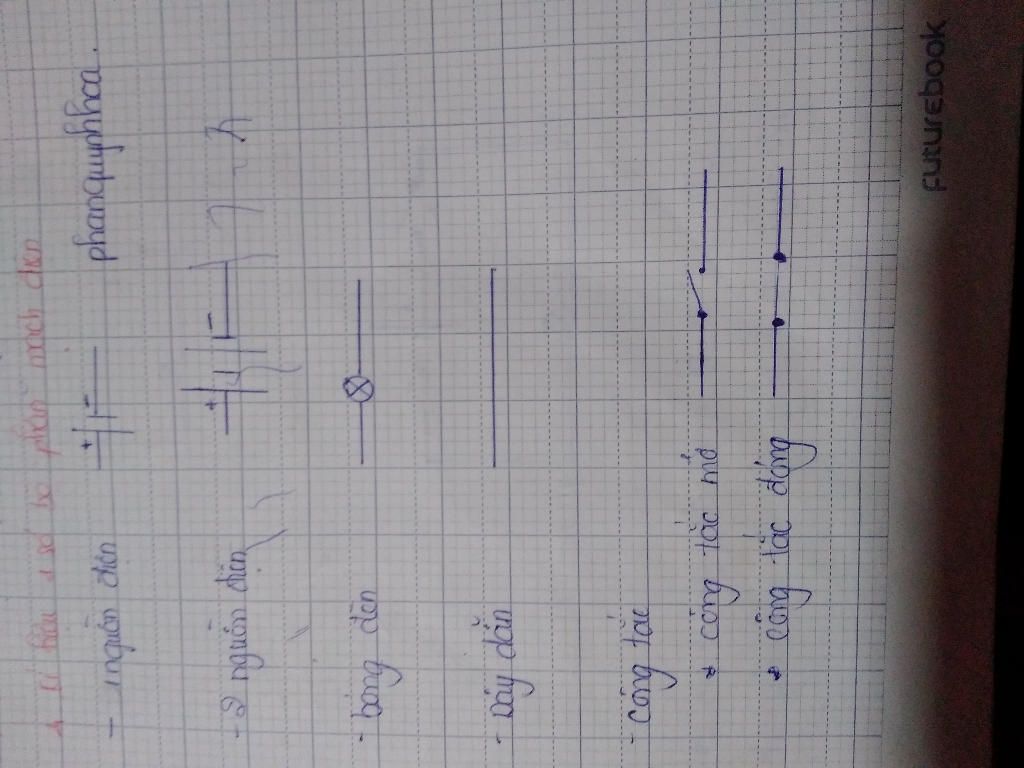 1, Kí hiệu 1 số bộ phận mạch điện
- nguồn điện + - phanquynhhoa.
- 2 nguồn điện + -
- bóng đèn
- Dây dẫn
- Công tắc
* công tắc mở
* công tắc đóng
futurebook